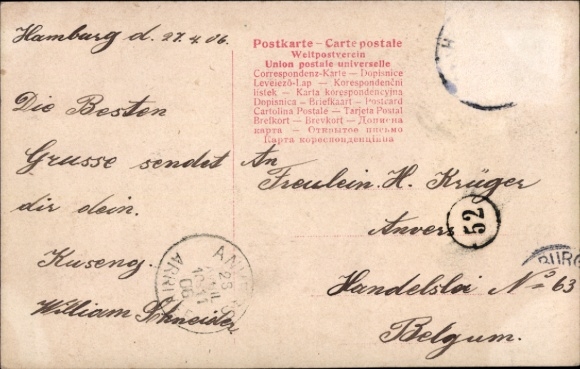 Hamburg d. 27.4.06.
Die Besten
Grusse sendet
dir dein.
Kuseng.
William Schneider
Postkarte — Carte postale
Weltpostverein
Union postale universelle
Correspondenz-Karte — Dopisnice
Levelező-Lap — Korespondenční
listek — Karta korespondencyjna
Dopisnica — Briefkaart — Postcard
Cartolina Postale — Tarjeta Postal
Brefkort — Brevkort — Дописна
карта — Открытое письмо
Карта кореспонденціина
An
Freulein. H. Krüger
Anvers
Handelslei No 63
Belgum.
52
H
BURG
ANVERS
25
10-11
06